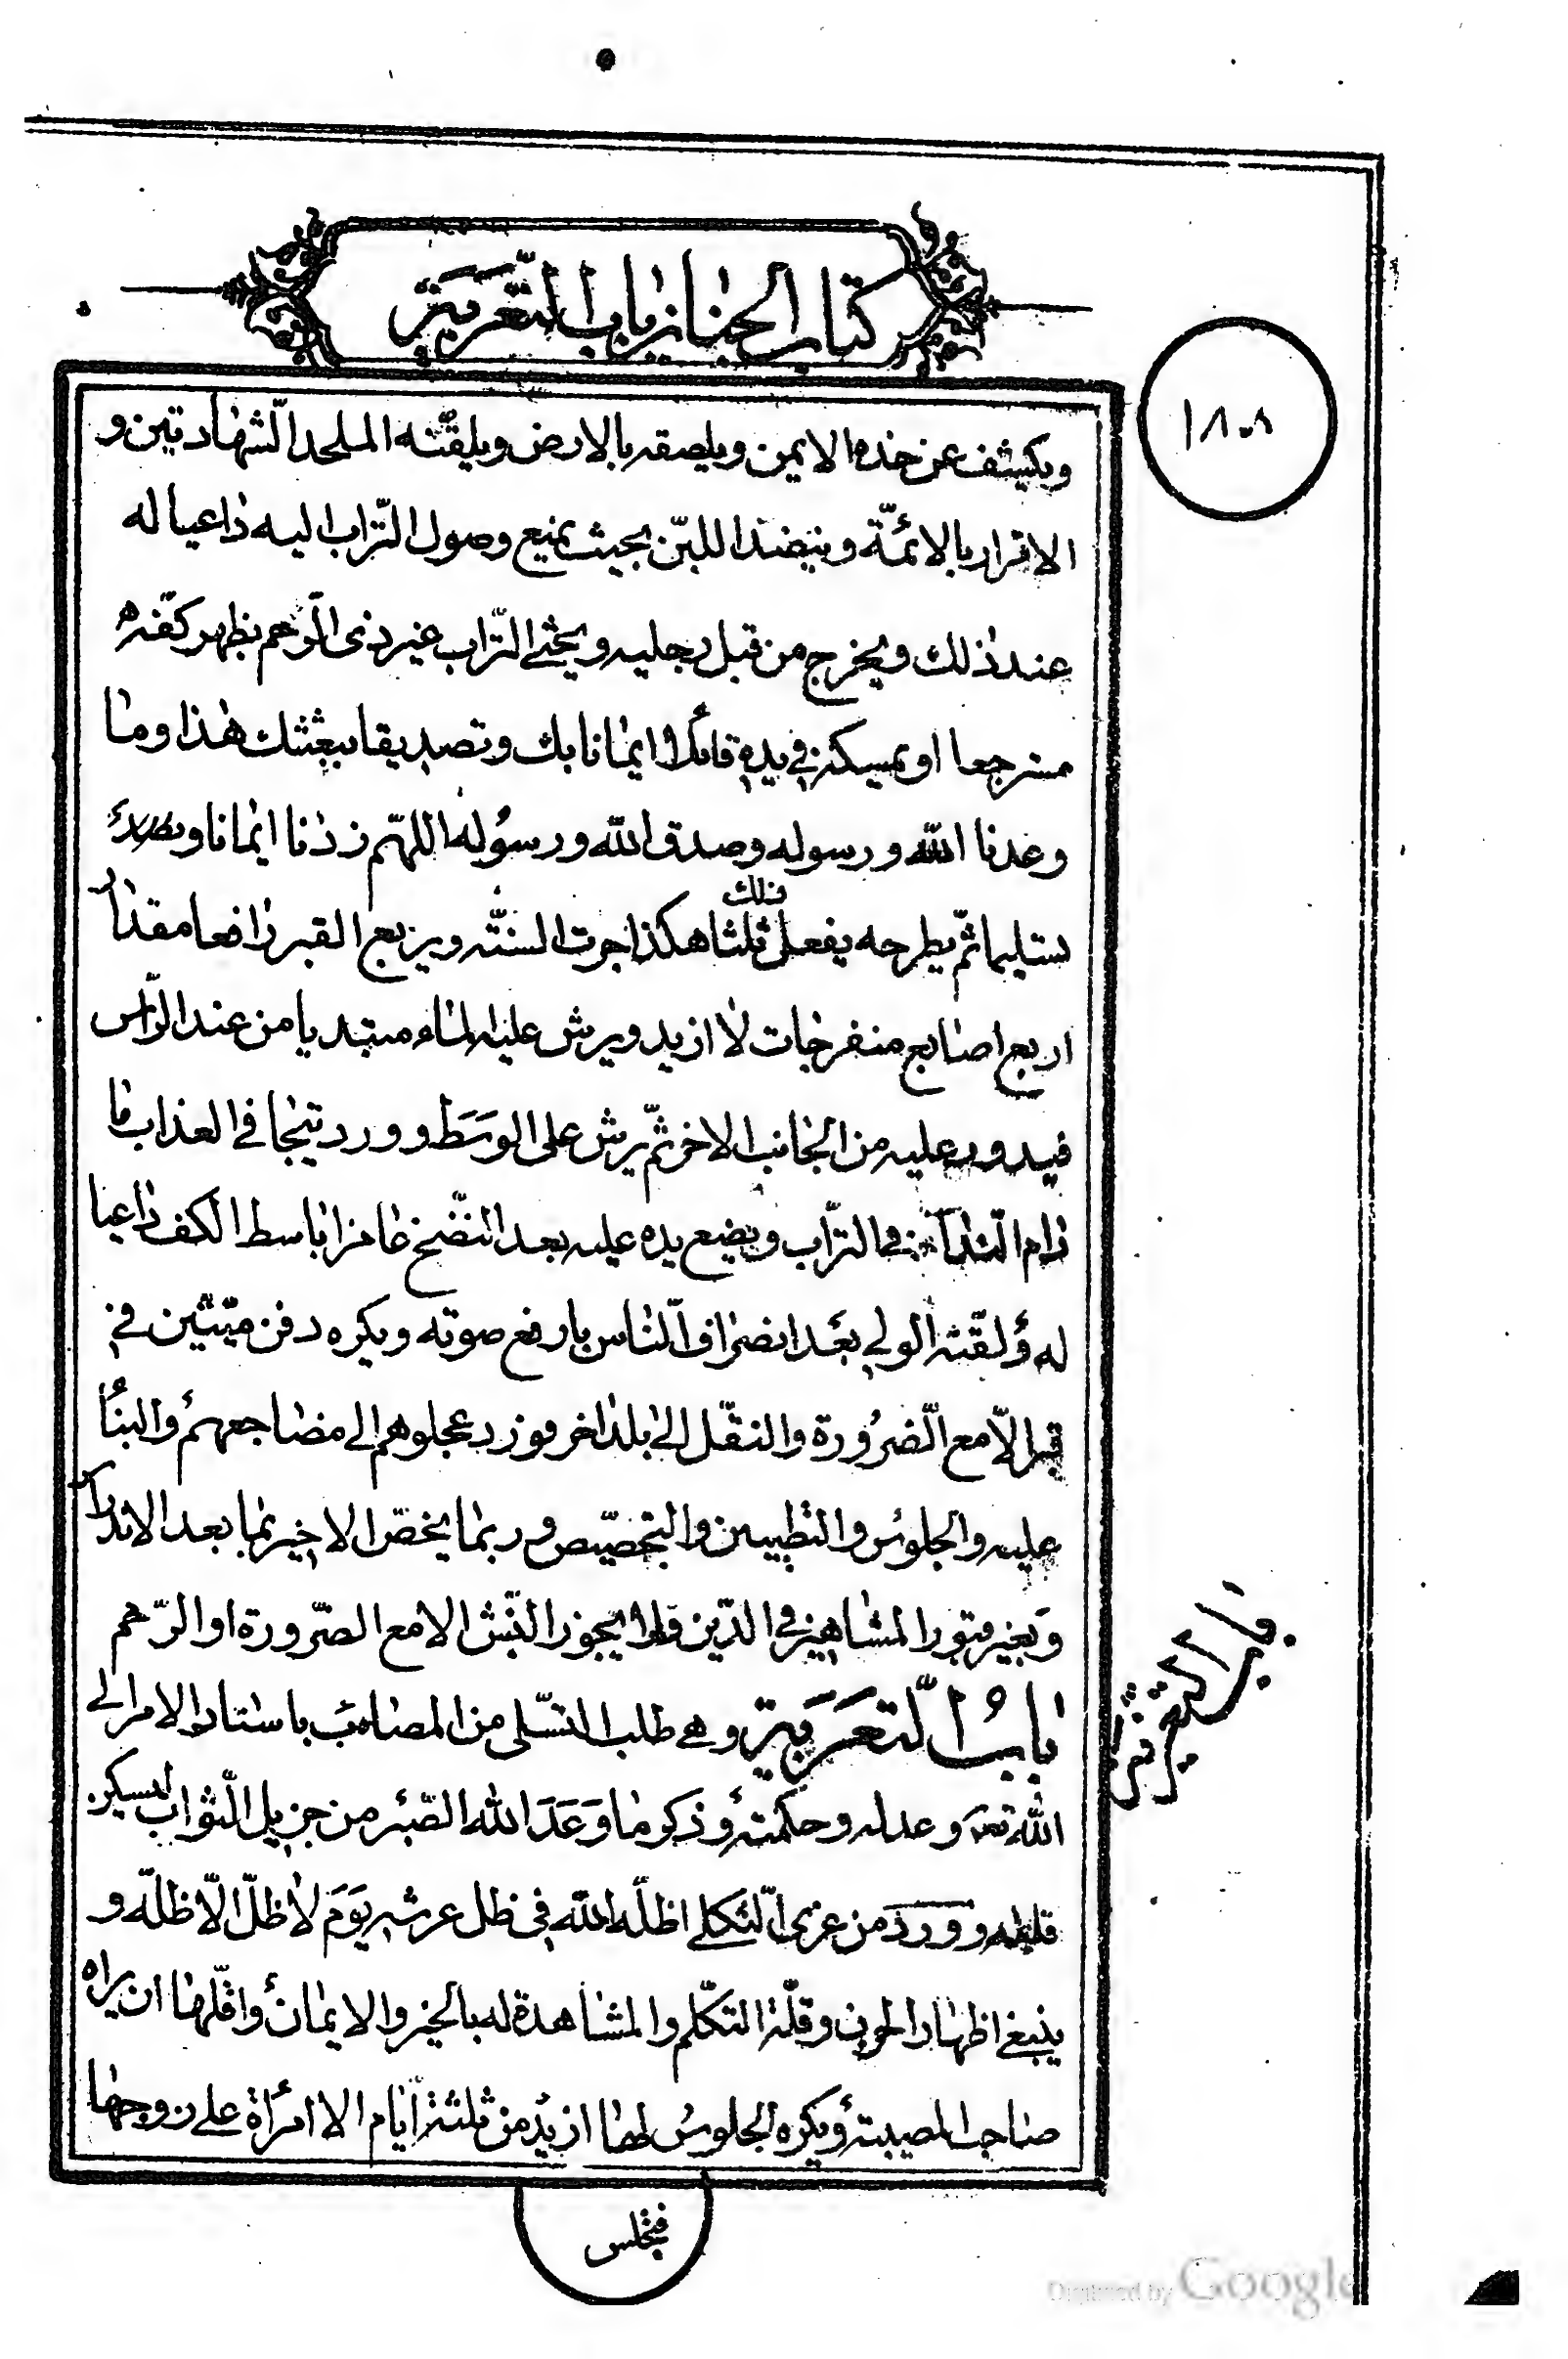 كتاب الجنايز باب التّعزية
١٨٠٨
ويكشف عن خده الايمن ويلصقه بالارض ويلقّنه الملحد الشّهادتين و
الاقرار بالائمّة وينضد اللبّن بحيث يمنع وصول التّراب اليه داعيا له
عند ذلك ويخرج من قبل رجليه ويحثى التّراب غير ذى الرّحم بظهر كفّه
مسترجعا او يمسكه في يده قائلا ايمانا بك وتصديقا ببعثك هذا وما
وعدنا الله ورسوله وصدق الله ورسوله اللهمّ زدنا ايمانا و
تسليما ثمّ يطرحه يفعل ذلك ثلثا هكذا جرت السنّة ويربع القبر رافعا مقدار
اربع اصابع منفرجات لا ازيد ويرش عليه الماء مبتديا من عند الرّاس
فيدور عليه من الجانب الاخر ثمّ يرش على الوسَط وورد تيجافى العذاب ما
دام النّداوة في التّراب ويضع يده عليه بعد النضّح غامزا باسط الكف داعيا
له ولقّنه الولي بعَد انصراف النّاس بارفع صوته ويكره دفن ميّتين في
قبر الاّ مع الضّرُورة والنقّل الى بلد اخر فورد عجلوهم الى مضاجعهم والبناء
عليه والجلوس والتطيين والتجصيّص وربما يخصّ الاخير بما بعد الاندراس
وَبغير قبور المشاهير في الدّين ولا يجوز النّبش الا مع الضّرورة او الرّحم
بابُ التّعَزَية وهى طلب التسّلى من المصاب باسناد الامر الى
الله تعَ وعدله وحكمته وذكر ما وَعَدَ الله الصّبر من جزيل الثّواب ليسكن
قلبه ووَرَدَ من عزى الثّكلى اظلّه الله في ظل عرشه يَوَمَ لا ظلّ الاّ ظلّه و
ينبغى اظهار الحزن وقلّة التكلّم والمشاهدة له بالخير والايمان واقلّها ان يراه
صاحب المصيبة ويكره الجلوسُ لها ازيدُ من ثلثة ايّام الا امرأة على زوجها
فتجلس
Digitized by Google